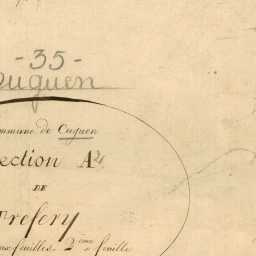 -35-
Cuguen
Commune de Cuguen
Section A 2
DE
Trefery
feuilles. 2.ème feuille